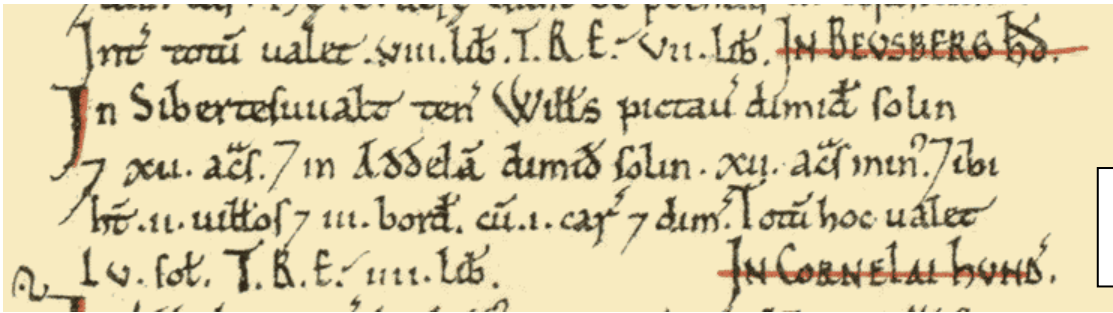 Int̄ totū ualet .viii. lib̄. T.R.E.´ vii. lib̄. IN BEVSBERG HĐ.
In Siberteſuualt ten̄ Will̄s pictau̓ dimid̄ ſolin
⁊ xii. ac̄ſ. ⁊ in Addelā dimiđ ſolin. xii. ac̄ſ min̓. ⁊ ibi
ht̄ .ii. uilłoſ ⁊ iii. borđ. cū .i. car̓ ⁊ dim̓. Totū hoc ualet
lv. ſol̄. T.R.E.´ iiii. lib̄. IN CORNELAI HVNĐ.